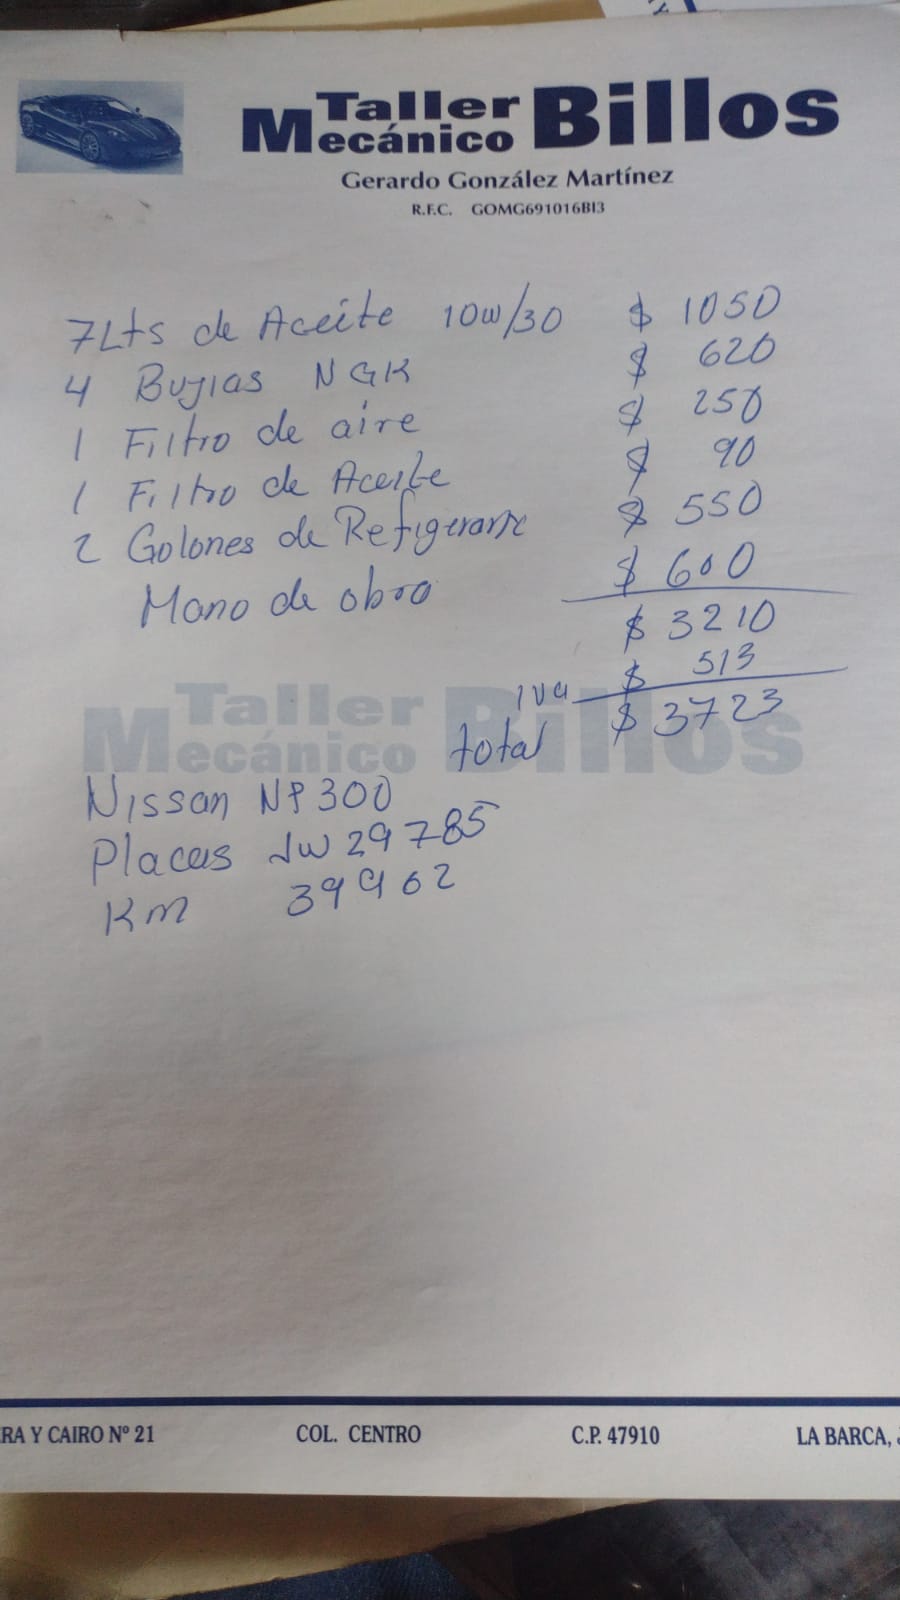 Taller Mecánico Billos
Gerardo González Martínez
R.F.C. GOMG691016BI3
7Lts de Aceite 10w/30 $ 1050
4 Bujias NGK $ 620
1 Filtro de aire $ 250
1 Filtro de Aceite $ 90
2 Golones de Refigerante $ 550
Mano de obra $ 600
$ 3210
IVA $ 513
total $ 3723
Taller Mecánico Billos
Nissan NP300
Placas JW29785
Km 39962
RA Y CAIRO Nº 21 COL. CENTRO C.P. 47910 LA BARCA,